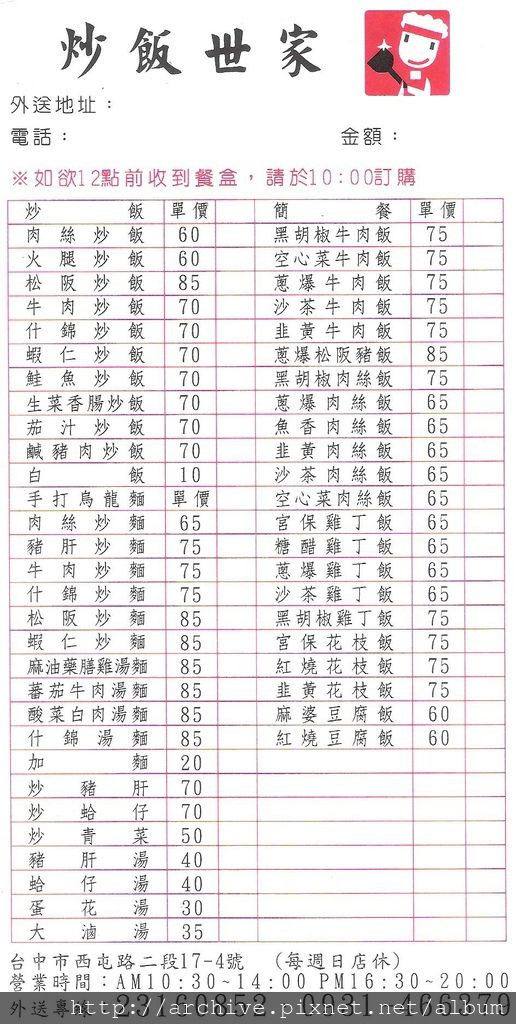 炒飯世家
外送地址：
電話：　金額：
※如欲12點前收到餐盒，請於10:00訂購
炒飯 單價 簡餐 單價
肉絲炒飯 60 黑胡椒牛肉飯 75
火腿炒飯 60 空心菜牛肉飯 75
松阪炒飯 85 蔥爆牛肉飯 75
牛肉炒飯 70 沙茶牛肉飯 75
什錦炒飯 70 韭黃牛肉飯 75
蝦仁炒飯 70 蔥爆松阪豬飯 85
鮭魚炒飯 70 黑胡椒肉絲飯 75
生菜香腸炒飯 70 蔥爆肉絲飯 65
茄汁炒飯 70 魚香肉絲飯 65
鹹豬肉炒飯 70 韭黃肉絲飯 65
白飯 10 沙茶肉絲飯 65
手打烏龍麵 單價 空心菜肉絲飯 65
肉絲炒麵 65 宮保雞丁飯 65
豬肝炒麵 75 糖醋雞丁飯 65
牛肉炒麵 75 蔥爆雞丁飯 65
什錦炒麵 75 沙茶雞丁飯 65
松阪炒麵 85 黑胡椒雞丁飯 75
蝦仁炒麵 85 宮保花枝飯 75
麻油藥膳雞湯麵 85 紅燒花枝飯 75
蕃茄牛肉湯麵 85 韭黃花枝飯 75
酸菜白肉湯麵 85 麻婆豆腐飯 60
什錦湯麵 85 紅燒豆腐飯 60
加麵 20
炒豬肝 70
炒蛤仔 70
炒青菜 50
豬肝湯 40
蛤仔湯 40
蛋花湯 30
大滷湯 35
台中市西屯路二段17-4號　(每週日店休)
營業時間：AM10:30~14:00 PM16:30~20:00
外送專
http://archive.pixnet.net/album